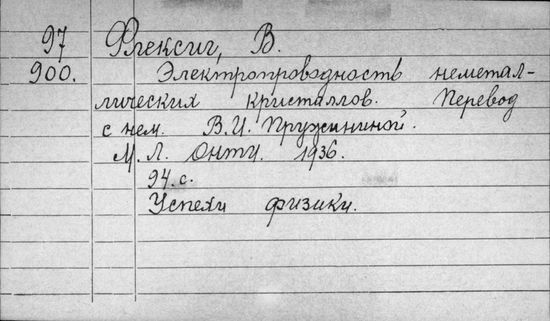 97 Флексиг, В.
900. Электропроводность неметал-
лических кристаллов. Перевод
с нем. В.И. Пружининой.
М.Л. Онту. 1936.
94. с.
Успехи физики.